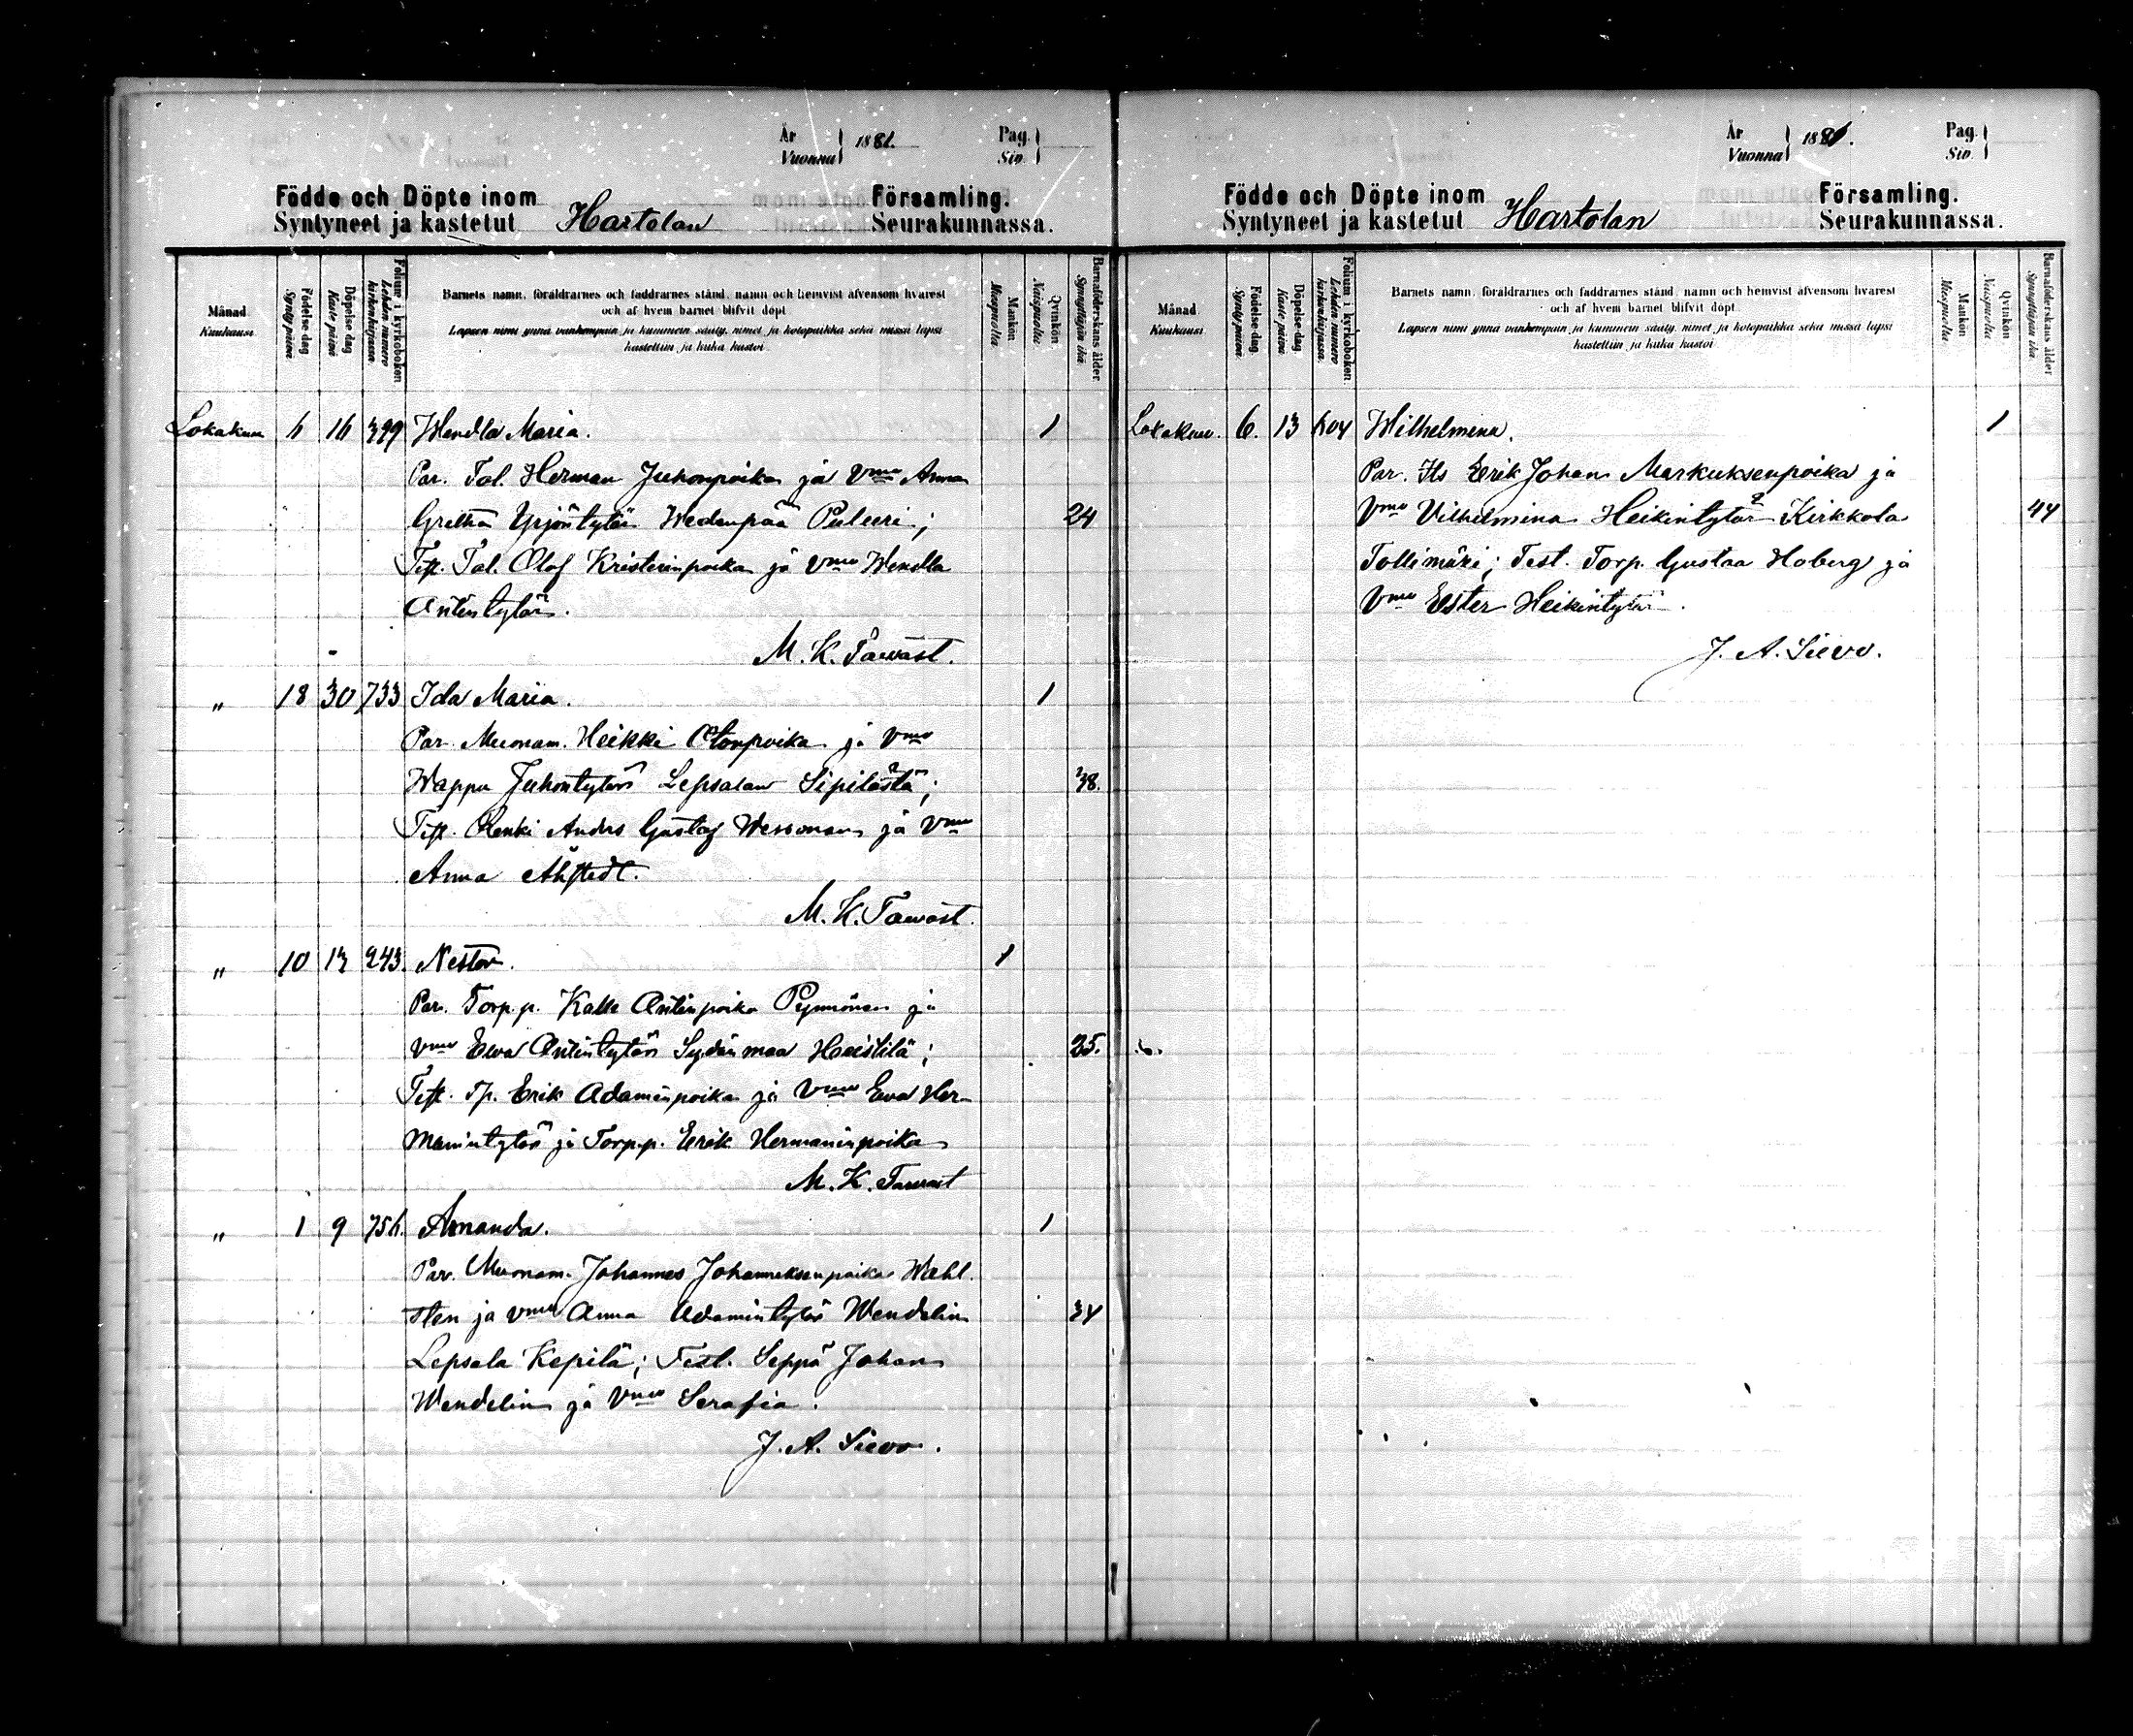 År
Vuonna 1881.
Pag.
Siv.
Födde och Döpte inom Församling.
Syntyneet ja kastetut Hartolan Seurakunnassa.
Månad
Kuukausi
Födelse dag
Synty päivä
Döpelse dag
Kaste päivä
Folium i kyrkoboken
Lehden numero kirkonkirjassa.
Barnets namn, föräldrarnes och faddrarnes stånd, namn och hemvist äfvensom hvarest
och af hvem barnet blifvit döpt
Lapsen nimi ynnä vanhempain ja kummein sääty, nimet ja kotopaikka sekä missä lapsi
kastettiin ja kuka kastoi
Mankön
Miespuolia
Qvinkön
Naispuolia
Barnaföderskans ålder.
Synnyttäjän ikä
Lokakuu 6 16 399 Wendla Maria. 1
Par. Tal. Herman Juhonpoika ja Vmo Anna
Gretha Yrjöntytär Wedenpää Puleeri; 24
Test. Tal. Olof Kristerinpoika ja Vmo Wendla
Antintytär.
M. K. Tawast.
" 18 30 733 Ida Maria. 1
Par. Muonam. Heikki Otonpoika ja Vmo
Wappu Juhontytär Lepsalan Sipilästä; 38.
Test. Renki Anders Gustaf Wessonen ja Vmo
Anna Ahlstedt.
M. K. Tawast.
" 10 13 243. Nestor. 1
Par. Torp.p. Kalle Antinpoika Pynnönen ja
Vmo Ewa Antintytär Sydänmaa Heistilä; 25.
Test. Tp. Erik Adaminpoika ja Vmo Ewa Her-
manintytär ja Torp.p. Eerik Hermaninpoika
M. K. Tawast
" 1 9 756. Amanda. 1
Par. Muonam. Johannes Johanneksenpoika Wahl-
sten ja vmo Anna Adamintytär Wendelin 34
Lepsala Kepilä; Test. Seppä Johan
Wendelin ja Vmo Serafia.
J. A. Sievo.
År
Vuonna 1881.
Pag.
Siv.
Födde och Döpte inom Församling.
Syntyneet ja kastetut Hartolan Seurakunnassa.
Månad
Kuukausi
Födelse dag
Synty päivä
Döpelse dag
Kaste päivä
Folium i kyrkoboken
Lehden numero kirkonkirjassa.
Barnets namn, föräldrarnes och faddrarnes stånd, namn och hemvist äfvensom hvarest
och af hvem barnet blifvit döpt
Lapsen nimi ynnä vanhempain ja kummein sääty, nimet ja kotopaikka sekä missä lapsi
kastettiin ja kuka kastoi
Mankön
Miespuolia
Qvinkön
Naispuolia
Barnaföderskans ålder
Synnyttäjän ikä
Lokakuu. 6. 13 604 Wilhelmina. 1
Par. Its Erik Johan Markuksenpoika ja
Vmo Vilhelmina Heikintytär Kirkkola 44
Tollimäki; Test. Torp. Gustaa Hoberg ja
Vmo Ester Heikintytär.
J. A. Sievo.